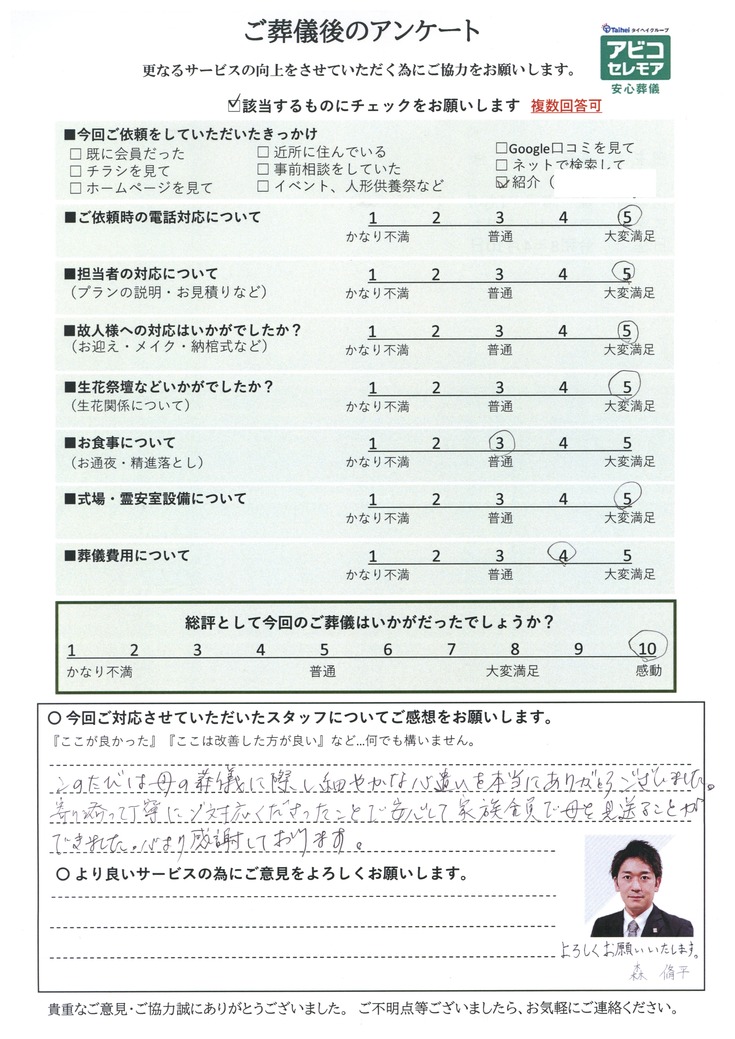 ご葬儀後のアンケート
Taihei タイヘイグループ
アビコ
セレモア
安心葬儀
更なるサービスの向上をさせていただく為にご協力をお願いします。
☑該当するものにチェックをお願いします 複数回答可
■今回ご依頼をしていただいたきっかけ
☐ 既に会員だった ☐ 近所に住んでいる ☐Google口コミを見て
☐ チラシを見て ☐ 事前相談をしていた ☐ ネットで検索して
☐ ホームページを見て ☐ イベント、人形供養祭など ☑紹介（
■ご依頼時の電話対応について 1 2 3 4 5
かなり不満 普通 大変満足
■担当者の対応について 1 2 3 4 5
（プランの説明・お見積りなど） かなり不満 普通 大変満足
■故人様への対応はいかがでしたか？ 1 2 3 4 5
（お迎え・メイク・納棺式など） かなり不満 普通 大変満足
■生花祭壇などいかがでしたか？ 1 2 3 4 5
（生花関係について） かなり不満 普通 大変満足
■お食事について 1 2 3 4 5
（お通夜・精進落とし） かなり不満 普通 大変満足
■式場・霊安室設備について 1 2 3 4 5
かなり不満 普通 大変満足
■葬儀費用について 1 2 3 4 5
かなり不満 普通 大変満足
総評として今回のご葬儀はいかがだったでしょうか？
1 2 3 4 5 6 7 8 9 10
かなり不満 普通 大変満足 感動
〇 今回ご対応させていただいたスタッフについてご感想をお願いします。
『ここが良かった』『ここは改善した方が良い』など…何でも構いません。
このたびは母の葬儀に際し細やかな心遣いを本当にありがとうございました。
寄り添って丁寧にご対応くださったことで安心して家族全員で母を見送ることが
できました。心より感謝しております。
〇 より良いサービスの為にご意見をよろしくお願いします。
よろしくお願いいたします。
森 脩平
貴重なご意見・ご協力誠にありがとうございました。 ご不明点等ございましたら、お気軽にご連絡ください。